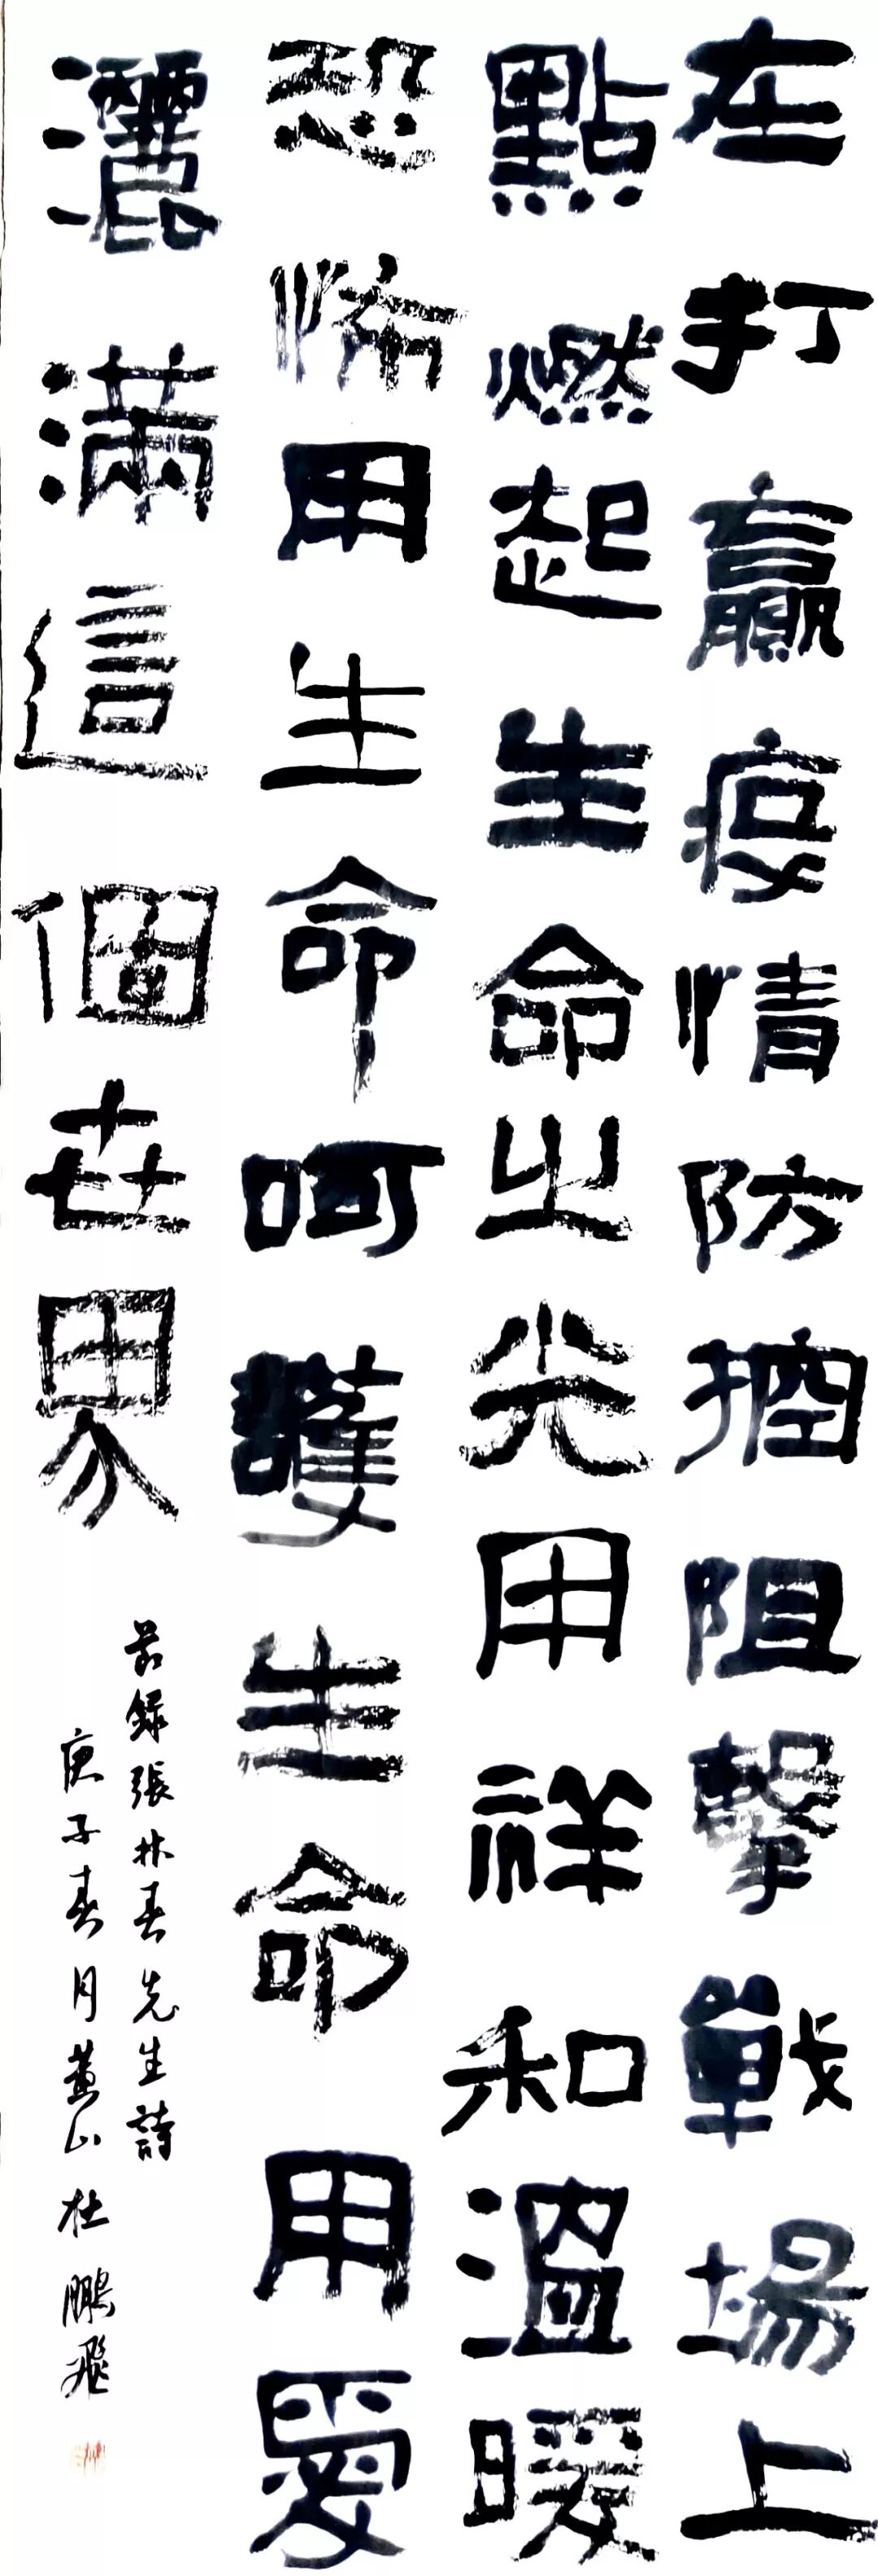 在打赢疫情防控阻擊戰場上
點燃起生命之光用祥和溫暖
恐怖用生命呵護生命用愛
灑滿這個世界
節録張林春先生詩
庚子春月黄山杜鵬飛